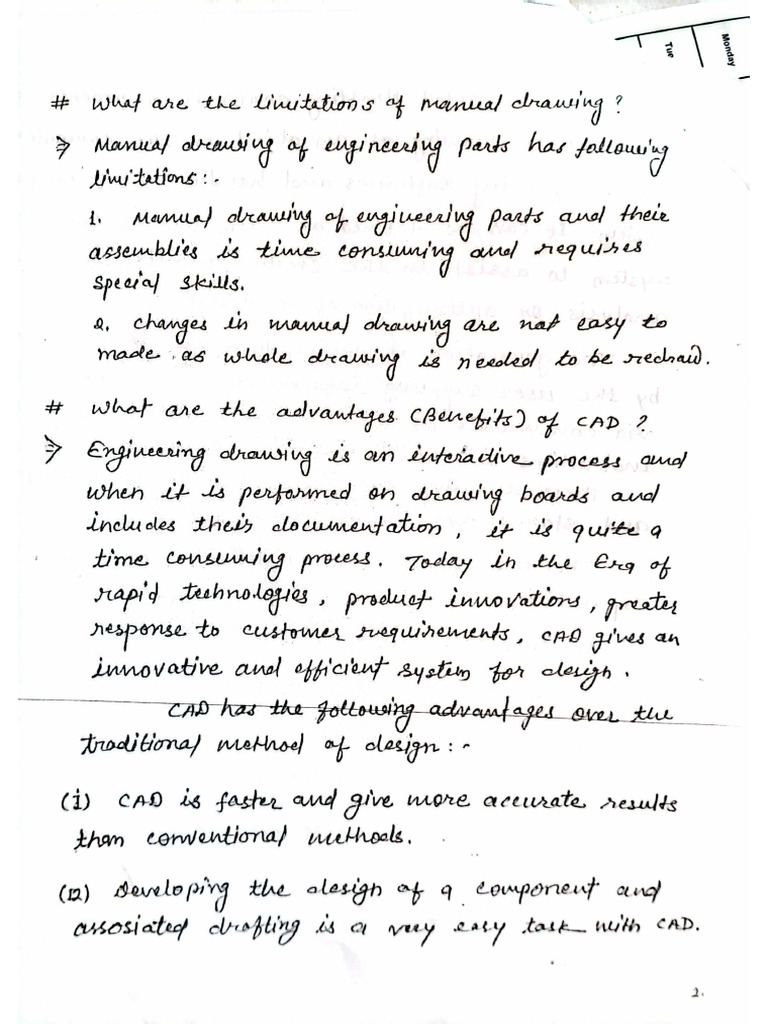 Monday
Tue
# What are the limitations of manual drawing?
⇒ Manual drawing of engineering parts has following
limitations:-
1. Manual drawing of engineering parts and their
assemblies is time consuming and requires
special skills.
2. Changes in manual drawing are not easy to
made as whole drawing is needed to be redraid.
# What are the advantages (Benefits) of CAD ?
⇒ Engineering drawing is an interactive process and
when it is performed on drawing boards and
includes their documentation, it is quite a
time consuming process. Today in the Era of
rapid technologies, product innovations, greater
response to customer requirements, CAD gives an
innovative and efficient system for design.
CAD has the following advantages over the
traditional method of design:-
(i) CAD is faster and give more accurate results
then conventional methods.
(12) Developing the design of a component and
assosiated drafting is a very easy task with CAD.
2.